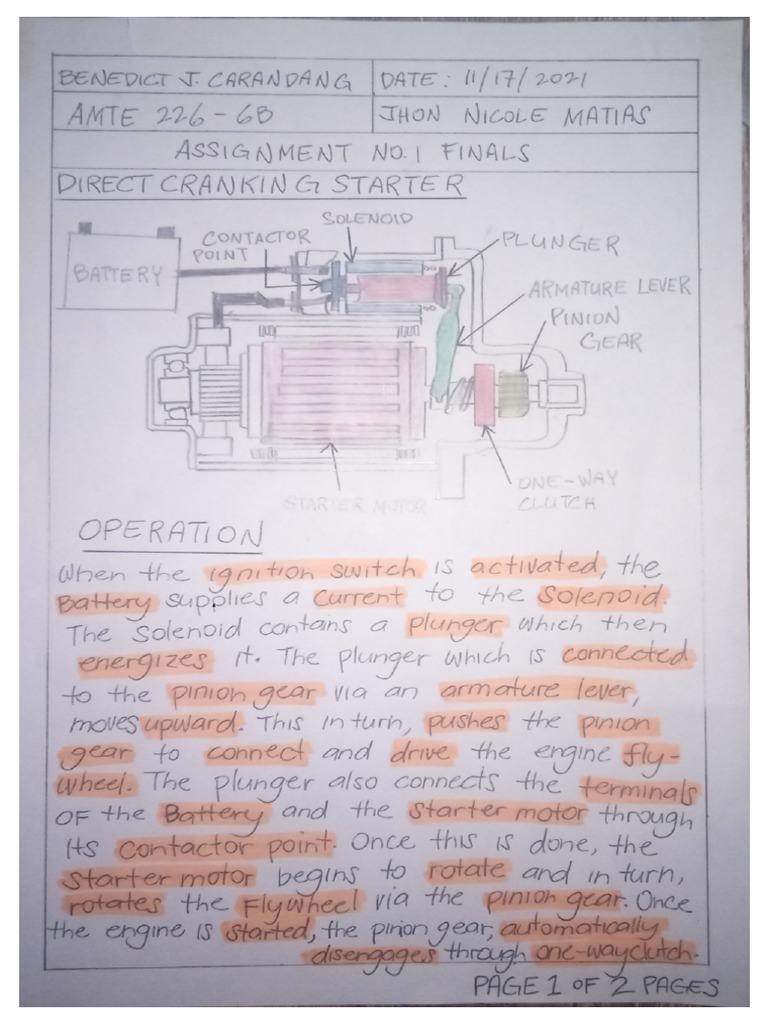 BENEDICT J. CARANDANG
DATE: 11/17/2021
AMTE 226-6B
JHON NICOLE MATIAS
ASSIGNMENT NO.1 FINALS
DIRECT CRANKING STARTER
SOLENOID
CONTACTOR
POINT
PLUNGER
BATTERY
ARMATURE LEVER
PINION
GEAR
ONE-WAY
CLUTCH
STARTER MOTOR
OPERATION
When the ignition switch is activated, the
Battery supplies a current to the solenoid.
The solenoid contains a plunger which then
energizes it. The plunger which is connected
to the pinion gear via an armature lever,
moves upward. This in turn, pushes the pinion
gear to connect and drive the engine fly-
wheel. The plunger also connects the terminals
OF the Battery and the starter motor through
its contactor point. Once this is done, the
starter motor begins to rotate and in turn,
rotates the Flywheel via the pinion gear. Once
the engine is started, the pinion gear, automatically
disengages through one-way clutch.
PAGE 1 OF 2 PAGES